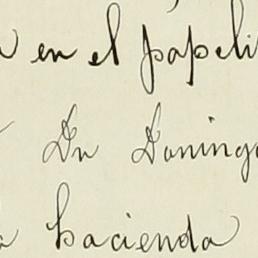 en el papeli
Dn Doming
hacienda